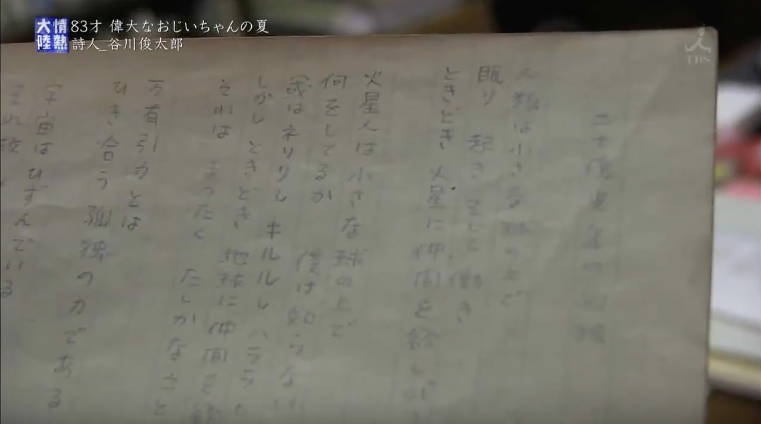 情熱大陸
83才 偉大なおじいちゃんの夏
詩人_谷川俊太郎
TBS
二十億光年の孤独
人類は小さな球の上で
眠り 起き そして 働き
ときどき 火星に仲間を欲しが
火星人は小さな球の上で
何をしてるか 僕は知らない
(或はネリリし キルルし ハララし
しかし ときどき 地球に仲間を
それは まったく たしかなこと
万有引力とは
ひき合う孤独の力である
宇宙はひずんでいる
それ故